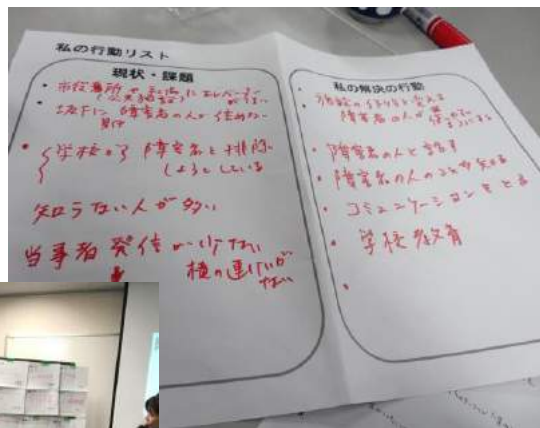 私の行動リスト
現状・課題
・市役所や駅に エレベーター
(公共施設) が ない
障害者の人が 住めない
・学校から 障害者を排除
しようとしている
知らない人が多い
当事者発信が少ない
横の連けいが
ない
私の解決の行動
施設の作りを変える
障害者の人が
・障害者の人と話す
・障害者の人のことを知る
・コミュニケーションをとる
・学校教育
・